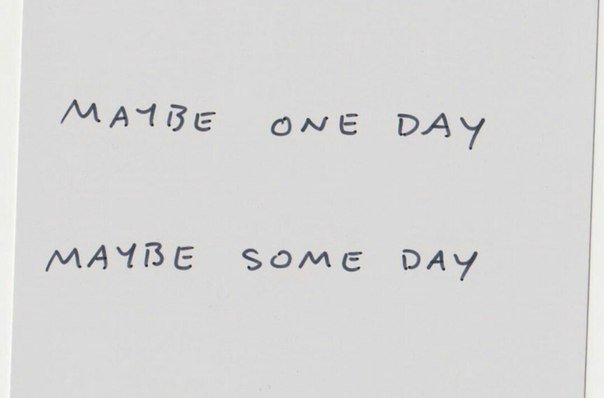 MAYBE ONE DAY
MAYBE SOME DAY